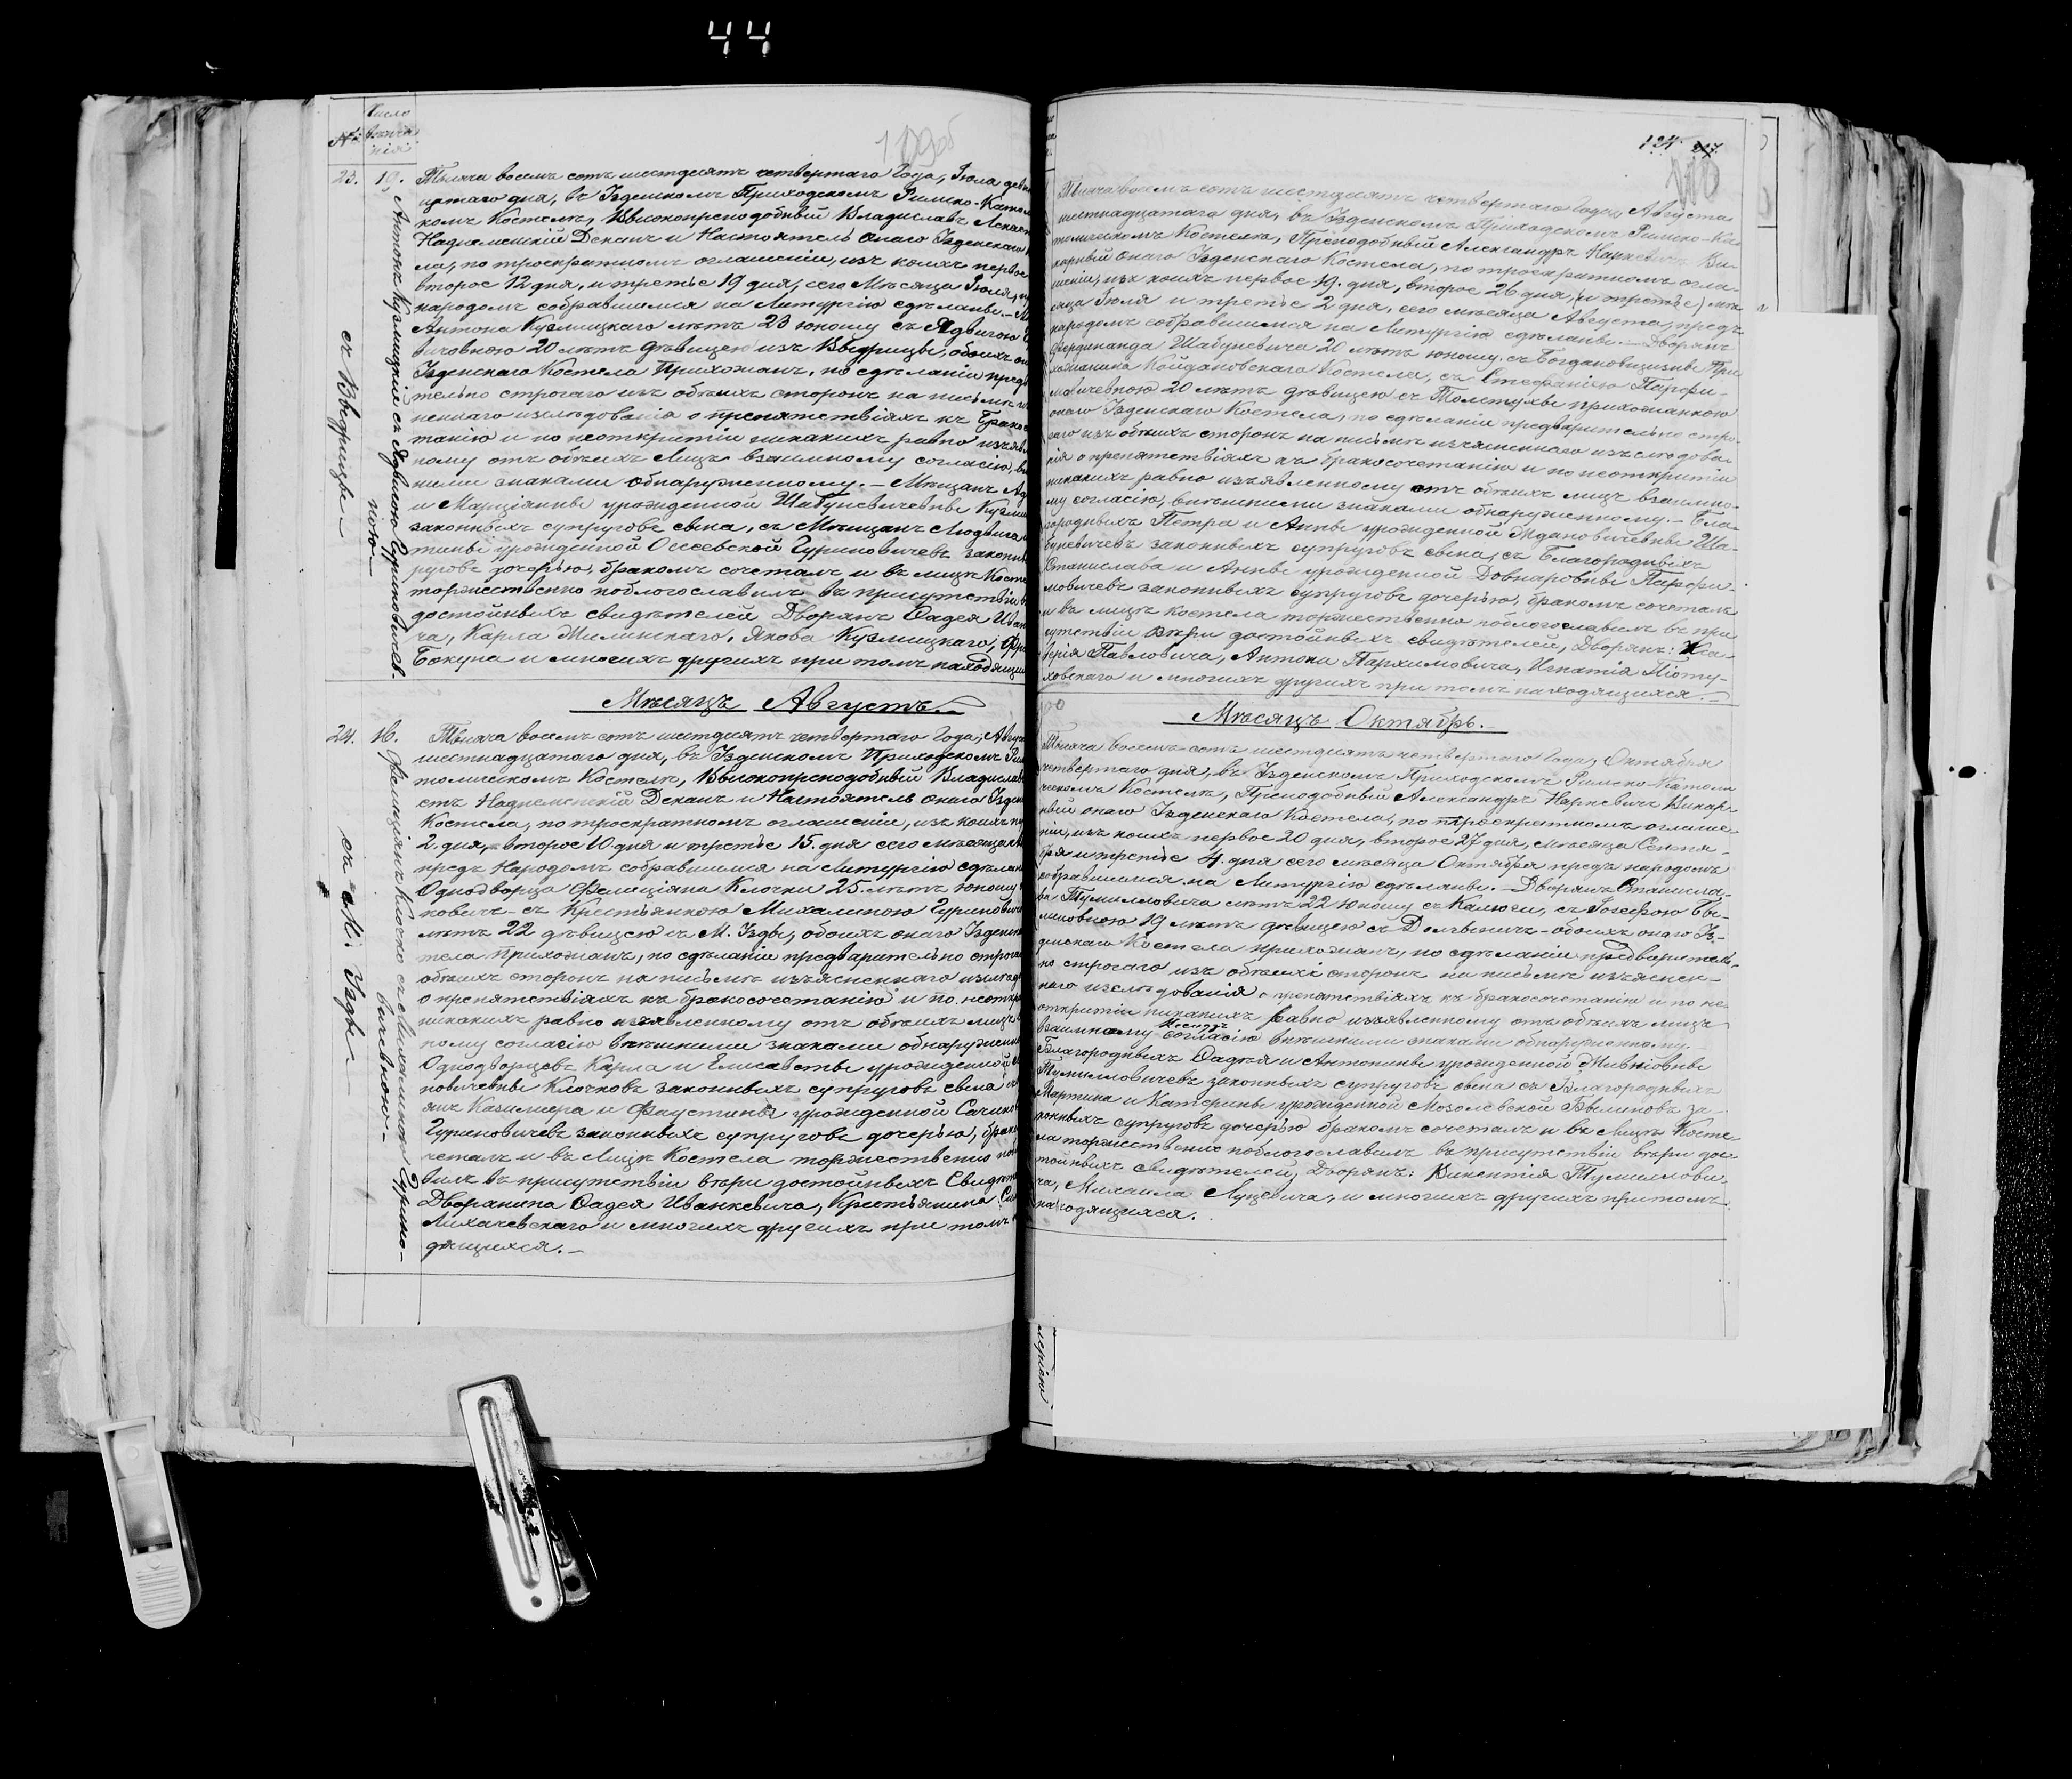 44
№
Число
вѣнча
нія
109об
23.
19.
Антонъ Кузмицкій съ Ядвигою Гуриновичев-
ною
съ Выдрицы
Тысяча восемь сотъ шестдесятъ четвертаго Года, Іюла девят
цатаго дня, въ Узденскомъ Приходскомъ Римско-Катол
комъ Костелѣ, Высокопреподобный Владиславъ
Наднеменскій Деканъ и Настоятель онаго Узденскаго
ла, по троекратномъ оглашеніи, изъ коихъ первое
второе 12 дня, и третье 19 дня, сего Мѣсяца Іюля,
народомъ собравшимся на Литургію сдѣланы.
Антона Кузмицкаго лѣтъ 23 юношу съ Ядвигою
вичовною 20 лѣтъ дѣвицею изъ Выдрицы, обоихъ
Узденскаго Костела Прихожанъ, по сдѣланіи предв
тельно строгаго изъ обѣихъ сторонъ на письмѣ
неннаго изслѣдованія о препятствіяхъ къ Брако
танію и по неоткрытіи никакихъ равно изъяв
ному отъ обѣихъ Лицъ взаимному согласію,
ними знаками обнаруженному. — Мѣщанъ
и Марціянны урожденной Шабуневичевны Кузми
законныхъ супруговъ сына, съ Мѣщанъ Людвига
тины урожденной Осеевской Гуриновичевъ законн
руговъ дочерью, бракомъ сочеталъ и въ лицѣ Косте
торжественно поблогославилъ въ присутствіи
достойныхъ свидѣтелей Дворянъ Фадея Иван
ча, Карла Милинскаго, Якова Кузмицкаго,
Бокуна и многихъ другихъ при томъ находящи
Мѣсяцъ Августъ.
24.
16.
Фелиціянъ Клочко съ Михалиною Гурино-
вичевною
съ М. Узды
Тысяча восемь-сотъ шестдесятъ четвертаго Года, Авгус
шестнадцатаго дня, въ Узденскомъ Приходскомъ Рим
толическомъ Костелѣ, Высокопреподобный Владиславъ
стъ Наднеменскій Деканъ и Настоятель онаго Узден
Костела, по троекратномъ оглашеніи, изъ коихъ
2 дня, второе 10 дня и третье 15. дня сего мѣсяца
предъ Народомъ собравшимся на Литургію сдѣлан
Однодворца Фелиціяна Клочки 25 лѣтъ юношу
новичъ съ Крестьянкою Михалиною Гуринович
лѣтъ 22 дѣвицею съ М. Узды, обоихъ онаго Узденск
тела Прихожанъ, по сдѣланіи предварительно строга
обѣихъ сторонъ на письмѣ изъясненнаго изслѣд
о препятствіяхъ къ бракосочетанію и по неоткр
никакихъ равно изъявленному отъ обѣихъ лицъ
ному согласію внѣшними знаками обнаружен
Однодворцевъ Карла и Елисаветы урожденной
новичевны Клочковъ законныхъ супруговъ сына
янъ Казимера и Фаустины урожденной
Гуриновичевъ законныхъ супруговъ дочерью, брако
четалъ и въ Лицѣ Костела торжественно
вилъ въ присутствіи вѣры достойныхъ Свидѣт
Дворянина Фадея Иванкевича, Крестьянина
Лихачевскаго и многихъ другихъ при томъ
дящихся.
124
Тысяча восемь сотъ шестдесятъ четвертаго Года, Августа
шестнадцатаго дня, въ Узденскомъ Приходскомъ Римско-Ка
толическомъ Костелѣ, Преподобный Александръ Наркевичъ Ви-
карный онаго Узденскаго Костела, по троекратномъ огла-
шеніи, изъ коихъ первое 19. дня, второе 26 дня, (и третье) мѣ-
сяца Іюля и третье 2 дня, сего мѣсяца Августа, предъ
народомъ собравшимся на Литургію сдѣланы. — Дворянъ
Фердинанда Шабуневича 20 лѣтъ юношу, съ Богдановщизны При
хожанина Койдановскаго Костела, съ Стефаніею Парфи-
мовичевною 20 лѣтъ дѣвицею съ Толстухи прихожанкою
онаго Узденскаго Костела, по сдѣланіи предварительно стро-
гаго изъ обѣихъ сторонъ на письмѣ изъясненнаго изслѣдова-
нія о препятствіяхъ къ бракосочетанію и по неоткрытіи
никакихъ равно изъявленному отъ обѣихъ лицъ взаимно-
му согласію, внѣшними знаками обнаруженному. — Бла-
городныхъ Петра и Анны урожденной Ждановичевны Ша-
буневичевъ законныхъ супруговъ сына, съ Благородныхъ
Станислава и Анны урожденной Довнаровны Парфи-
мовичевъ законныхъ супруговъ дочерью, бракомъ сочеталъ
и въ лицѣ костела торжественно поблогославилъ въ при
сутствіи вѣры достойныхъ свидѣтелей, Дворянъ: Кса-
верія Павловича, Антона Пархимовича, Игнатія Піоту-
ховскаго и многихъ другихъ при томъ находящихся. —
Мѣсяцъ Октябрь. —
Тысяча восемь-сотъ шестдесятъ четвертаго Года, Октября
четвертаго дня, въ Узденскомъ Приходскомъ Римско-Католи
ческомъ Костелѣ, Преподобный Александръ Наркевичъ Викар-
ный онаго Узденскаго Костела, по троекратномъ оглаше-
ніи, изъ коихъ первое 20 дня, второе 27 дня, мѣсяца Сентя-
бря и третье 4. дня сего мѣсяца Октября предъ народомъ
собравшимся на Литургію сдѣланы. — Дворянъ Станисла-
ва Тумиловича лѣтъ 22 юношу съ Калюги, съ Іозефою Бы-
линовною 19 лѣтъ дѣвицею съ — обоихъ онаго Уз-
денскаго Костела прихожанъ, по сдѣланіи предварител-
но строгаго изъ обѣихъ сторонъ на письмѣ изъяснен-
наго изслѣдованія о препятствіяхъ къ бракосочетанію и по не
открытіи никакихъ равно изъявленному отъ обѣихъ лицъ
взаимному согласію внѣшними знаками обнаруженному. —
Благородныхъ Фадѣя и Антонины урожденной
Тумилловичевъ законныхъ супруговъ сына съ Благородныхъ
Мартина и Катерины урожденной Мозолевской Былиновъ за-
конныхъ супруговъ дочерью бракомъ сочеталъ и въ Лицѣ Косте
ла торжественно поблогославилъ въ присутствіи вѣры дос
тойныхъ свидѣтелей, Дворянъ: Викентія Тумилови
ча, Михаила Луцевича, и многихъ другихъ при томъ
находящихся.